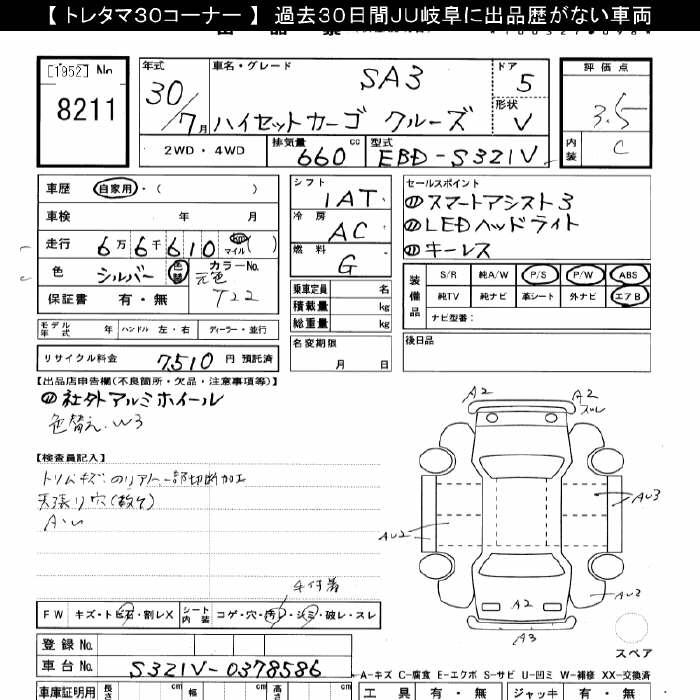 【 トレタマ30コーナー 】 過去30日間JU岐阜に出品歴がない車両
[1952] No
8211
年式 30/7月
車名・グレード SA3
ハイゼットカーゴ クルーズ
ドア 5
形状 V
評価点 3.5
内装 C
2WD・4WD 排気量 660 cc 型式 EBD-S321V
車歴 自家用・( )
車検 年 月
走行 6万6千610 km マイル ( )
色 シルバー 色替 カラーNo. 元色 T22
保証書 有・無
シフト 1AT
冷房 AC
燃料 G
セールスポイント
スマートアシスト3
LEDヘッドライト
キーレス
乗車定員 名
積載量 kg
総重量 kg
名変期限 月 日
装備品 S/R 純A/W P/S P/W ABS
純TV 純ナビ 革シート 外ナビ エアB
ナビ型番:
後日品
モデル年式 年 ハンドル 左・右 ディーラー・並行
リサイクル料金 7,510 円 預託済
【出品店申告欄(不良箇所・欠品・注意事項等)】
社外アルミホイール
色替え、W3
【検査員記入】
トリムキズ
リアトー部切断加工
天張り穴(数ケ)
A・U
FW キズ・トビ石・割レX シート内装 コゲ・穴・汚レ・シミ・破レ・スレ
登録 No.
車台 No. S321V-0378586
車庫証明用 長さ cm 幅 cm 高さ cm
A2
A2
スレ
AU3
AU2
AU2
A2
A3
スペア
A-キズ C-腐食 E-エクボ S-サビ U-凹ミ W-補修 XX-交換済
工具 有・無 ジャッキ 有・無